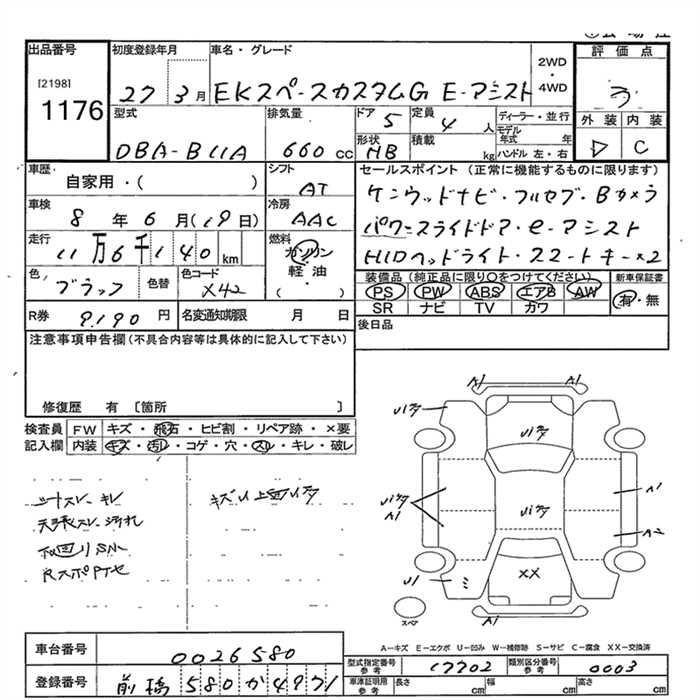 出品番号 初度登録年月 車名・グレード 2WD・4WD 評価点
[2198]
1176
27 3月 EKスペースカスタムG E-アシスト
3
型式 排気量 ドア 定員 ディーラー・並行
DBA-B11A 660cc 5 4人 モデル年式 年
形状 積載 外装 内装
HB kg ハンドル 左・右 D C
車歴 シフト セールスポイント (正常に機能するものに限ります)
自家用・( ) AT ケンウッドナビ・フルセグ・Bカメラ
車検 冷房
8年6月(19日) AAC パワースライドドア・e-アシスト
走行 燃料
11万6千140km ガソリン HIDヘッドライト・スマートキー×2
軽・油
( )
色 色替 色コード 装備品 (純正品に限り○をつけてください) 新車保証書
ブラック X42 PS PW ABS エアB AW 有・無
SR ナビ TV カワ
R券 9190円 名変通知期限 月 日 後日品
注意事項申告欄 (不具合内容等は具体的に記入して下さい)
修復歴 有 〔箇所 〕
検査員 FW キズ・飛石・ヒビ割・リペア跡・×要
記入欄 内装 キズ・汚レ・コゲ・穴・スレ・キレ・破レ
シートスレ、キレ キズU上面U1多
天張スレ、汚れ
下回りSN
A1 A1
U1多 U1多
U1多 U1多 A1
A1 A2
U1 XX
スペア A1
A-キズ E-エクボ U-凹み W-補修跡 S-サビ C-腐食 XX-交換済
車台番号 0026580
型式指定番号 17702 類別区分番号 0003
参考 参考
登録番号 前橋580か4971
車庫証明用 長さ cm 幅 cm 高さ cm
参考